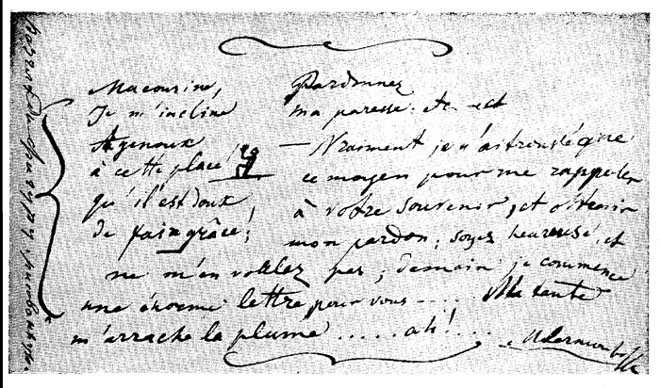 Ma cousine,
Je m'incline
A genoux
à cette place!
qu'il est doux
de faire grâce!
Pardonnez
ma paresse. etc - ect
— Vraiment je n'ai trouvé que
ce moyen pour me rappeler
à votre souvenir, et obtenir
mon pardon; soyez heureuse, et
ne m'en voulez pas; demain je commence
une énorme lettre pour vous .... Ma tante
m'arrache la plume ..... ah! ...
M Lermontoff